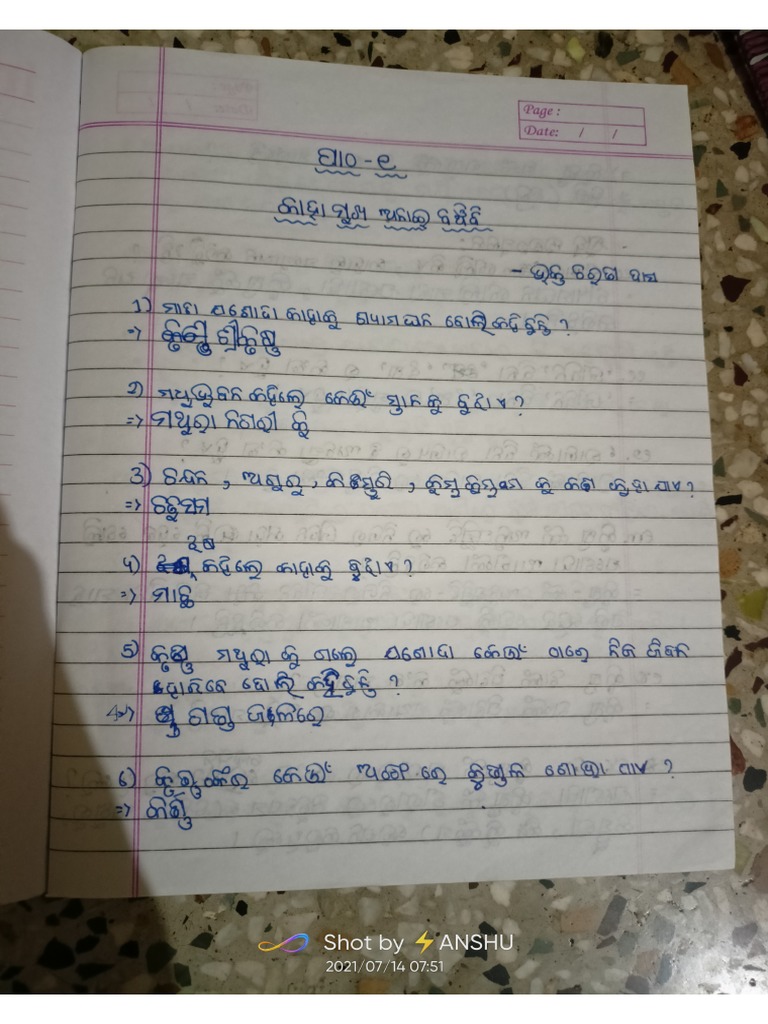 Page :
Date: / /
ପାଠ - ୧
କାହା ମୁଖ ଅନାଇ ବଞ୍ଚିବି
- ଭକ୍ତ ଚରଣ ଦାସ
1) ମାତା ଯଶୋଦା କାହାକୁ ଶ୍ୟାମଘନ ବୋଲି କହିଛନ୍ତି ?
=> ଶ୍ରୀକୃଷ୍ଣ
2) ମଧୁଭୁବନ କହିଲେ କେଉଁ ସ୍ଥାନକୁ ବୁଝାଏ ?
=> ମଥୁରା ନଗରୀ କୁ
3) ଚନ୍ଦନ , ଅଗୁରୁ , କସ୍ତୁରି , କୁ କୁହାଯାଏ ?
=> ଚତୁଃସମ
4) ଝଷ କହିଲେ କାହାକୁ ବୁଝାଏ ?
=> ମାଛ
5) କୃଷ୍ଣ ମଥୁରା କୁ ଗଲେ ଯଶୋଦା କେଉଁ ଠାରେ ନିଜ ଜୀବନ
ହାରିବେ ବୋଲି କହିଛନ୍ତି ?
=> ଜଳରେ
6) କେଉଁ ଅଙ୍ଗ ରେ କୁଣ୍ଡଳ ଶୋଭା ପାଏ ?
=> କର୍ଣ୍ଣ
Shot by ANSHU
2021/07/14 07:51